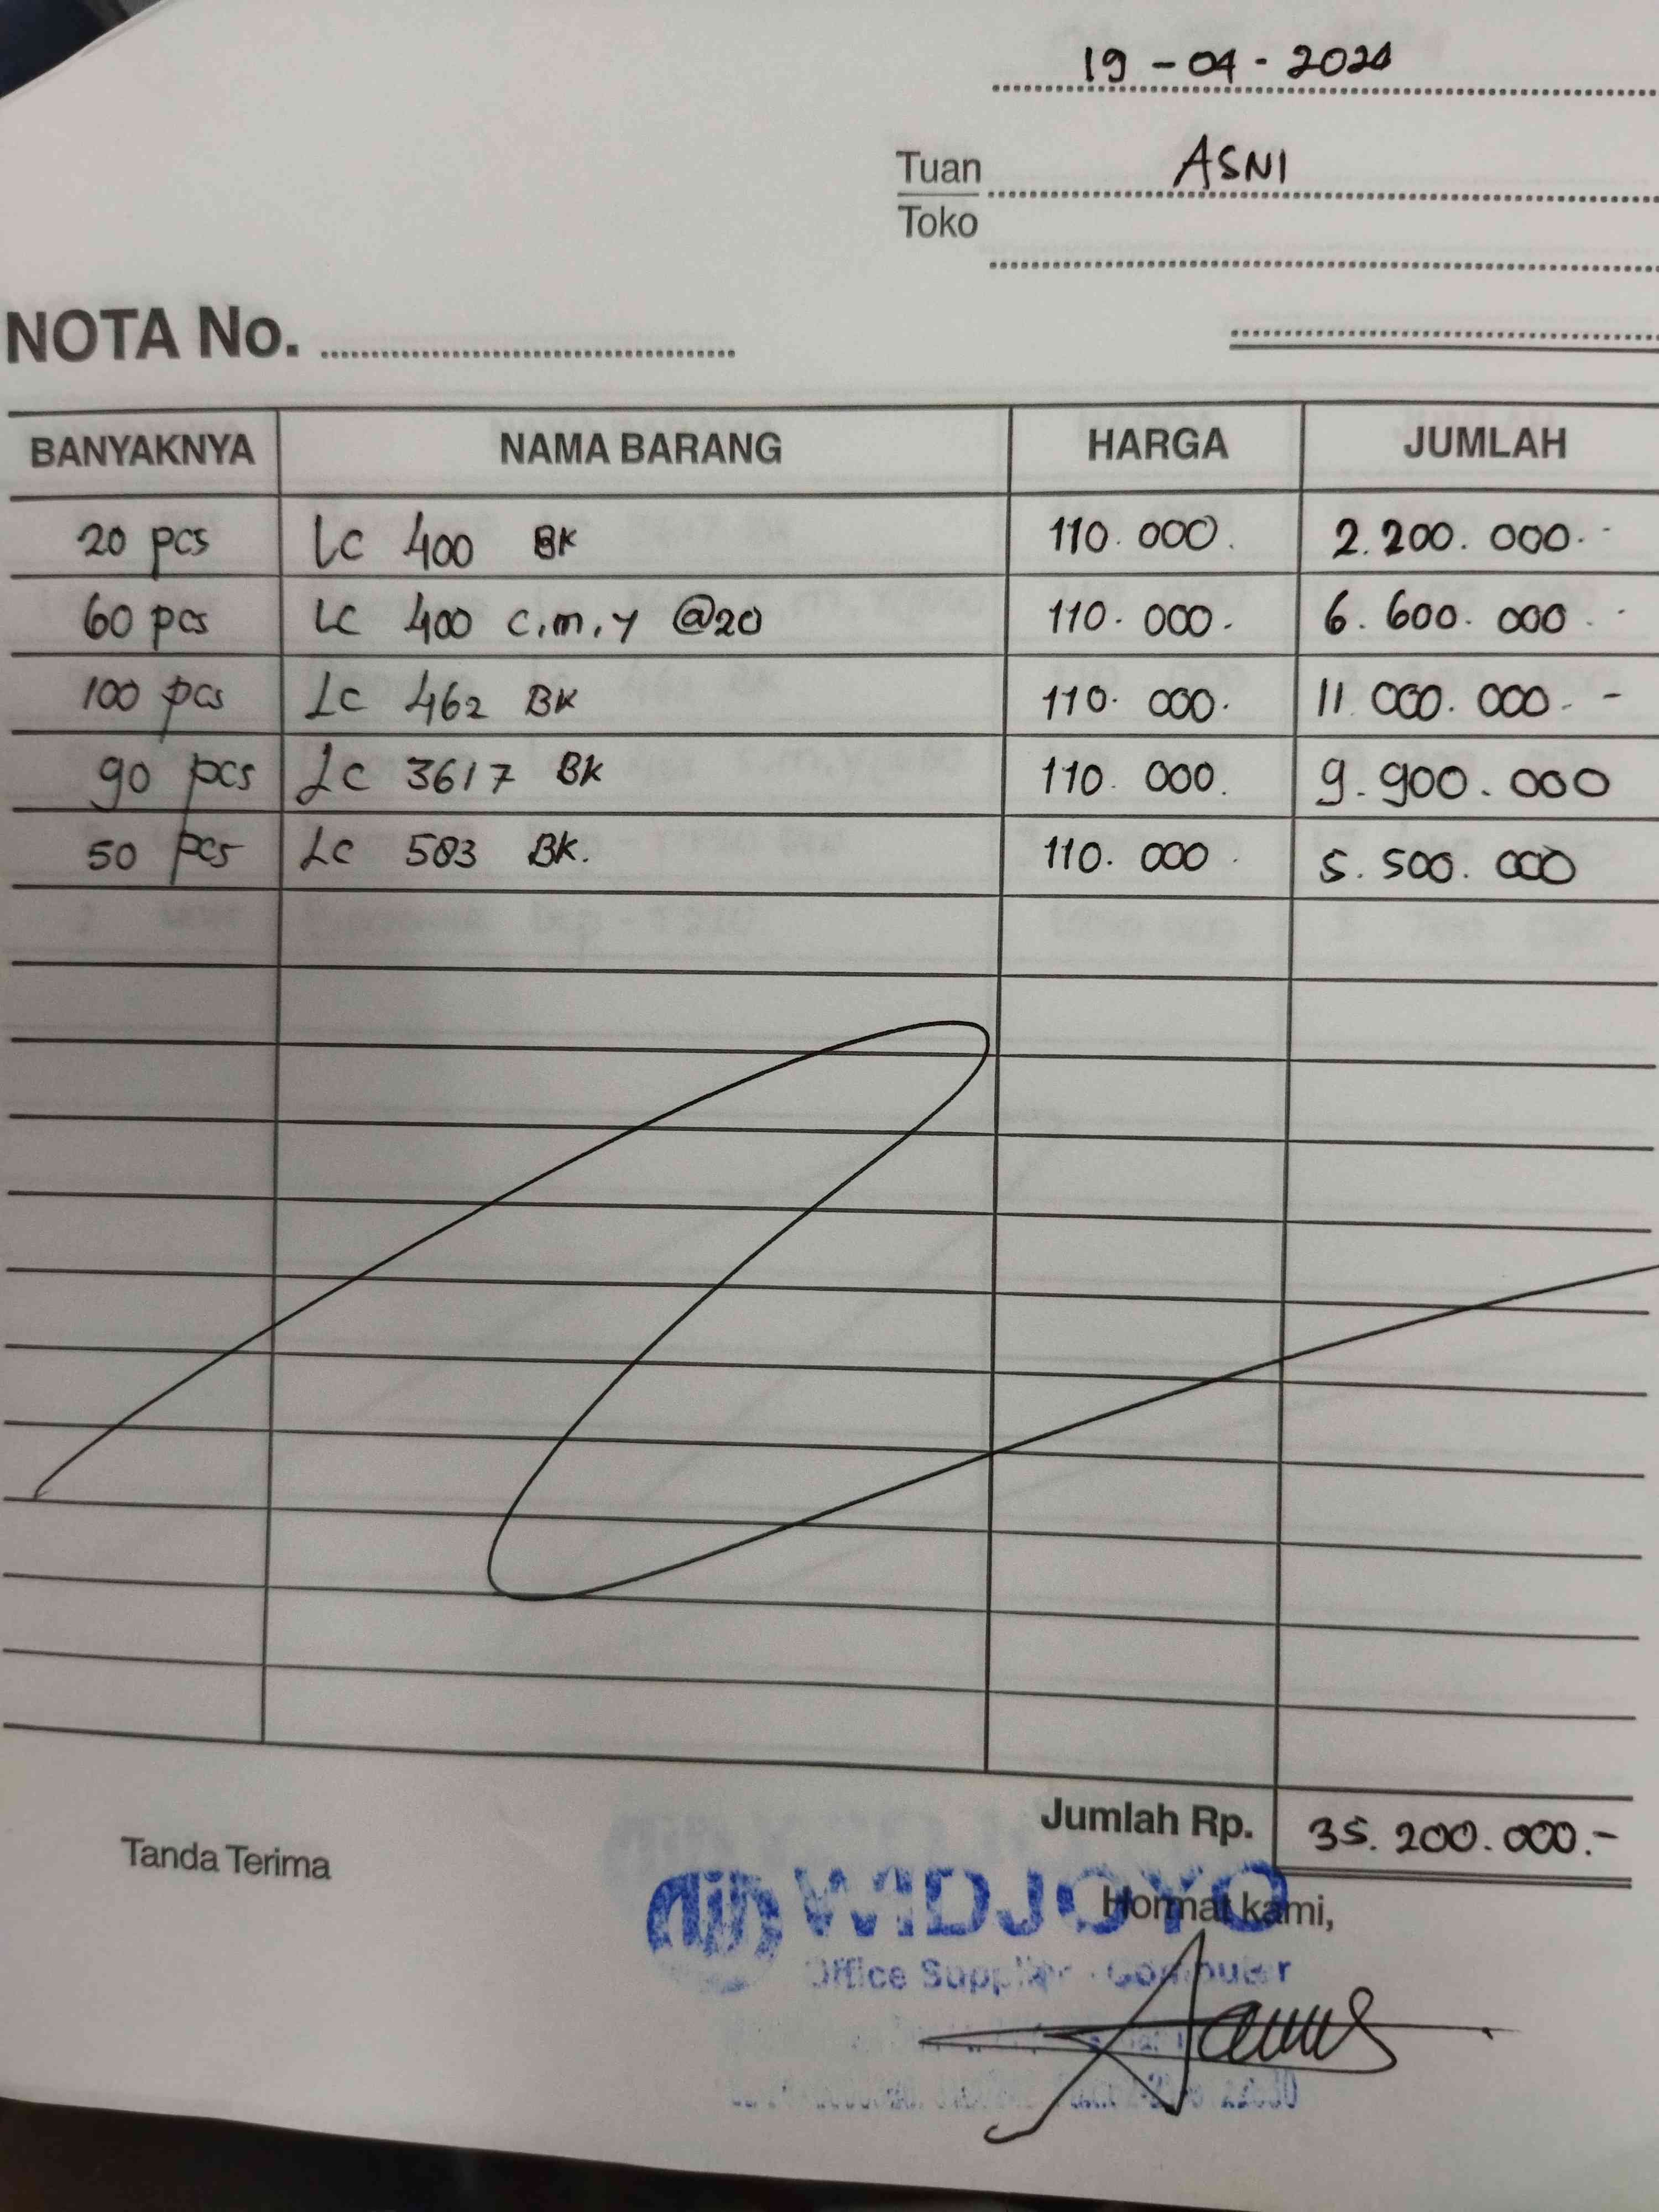 19 - 04 - 2024
Tuan ASNI
Toko
NOTA No.
BANYAKNYA NAMA BARANG HARGA JUMLAH
20 pcs LC 400 BK 110.000. 2.200.000.-
60 pcs LC 400 C,m,y @20 110.000. 6.600.000.-
100 pcs LC 462 BK 110.000. 11.000.000.-
90 pcs LC 3617 BK 110.000. 9.900.000
50 pcs LC 583 BK. 110.000. 5.500.000
Jumlah Rp. 35.200.000.-
Tanda Terima
WIDJOYO
Hormat kami,
Office Supplier - Computer